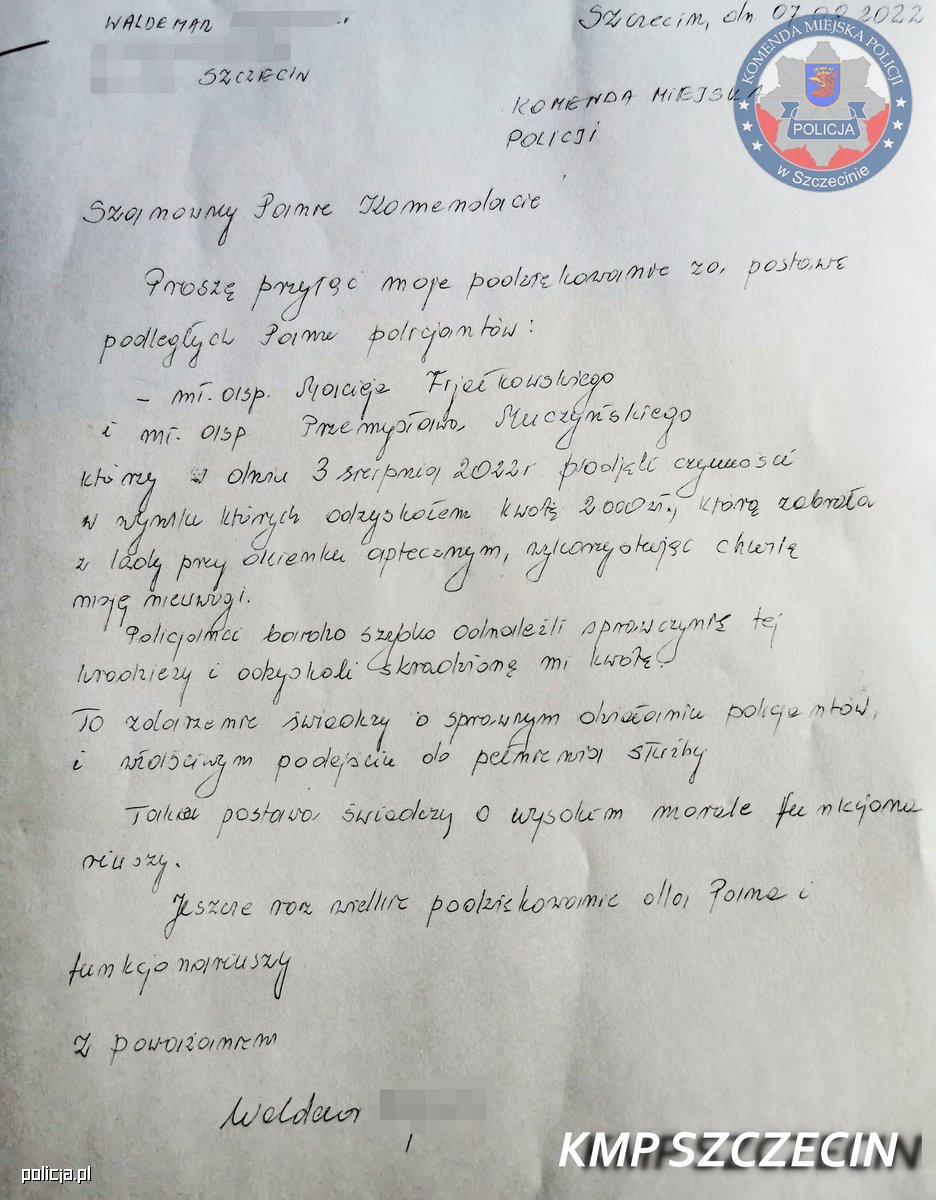 WALDEMAR
SZCZECIN
Szczecin, dn 07.08.2022
KOMENDA MIEJSKA
POLICJI
KOMENDA MIEJSKA POLICJI
POLICJA
w Szczecinie
Szanowny Panie Komendacie
Proszę przyjąć moje podziękowanie za postawę
podległych Panu policjantów:
- mł. asp. Macieja Fijałkowskiego
i mł. asp. Przemysława Muczyńskiego
którzy w dniu 3 sierpnia 2022r podjęli czynności
w wyniku których odzyskałem kwotę 2000 zł., którą zabrała
z lady przy okienku aptecznym, wykorzystując chwilę
moję nieuwagi.
Policjanci bardzo szybko odnaleźli sprawczynię tej
kradzieży i odzyskali skradzioną mi kwotę.
To zdarzenie świadczy o sprawnym działaniu policjantów,
i właściwym podejściu do pełnienia służby
Taka postawa świadczy o wysokim morale funkcjona
riuszy.
Jeszcze raz wielkie podziękowanie dla Pana i
funkcjonariuszy
Z poważaniem
Waldemar
policja.pl
KMP SZCZECIN